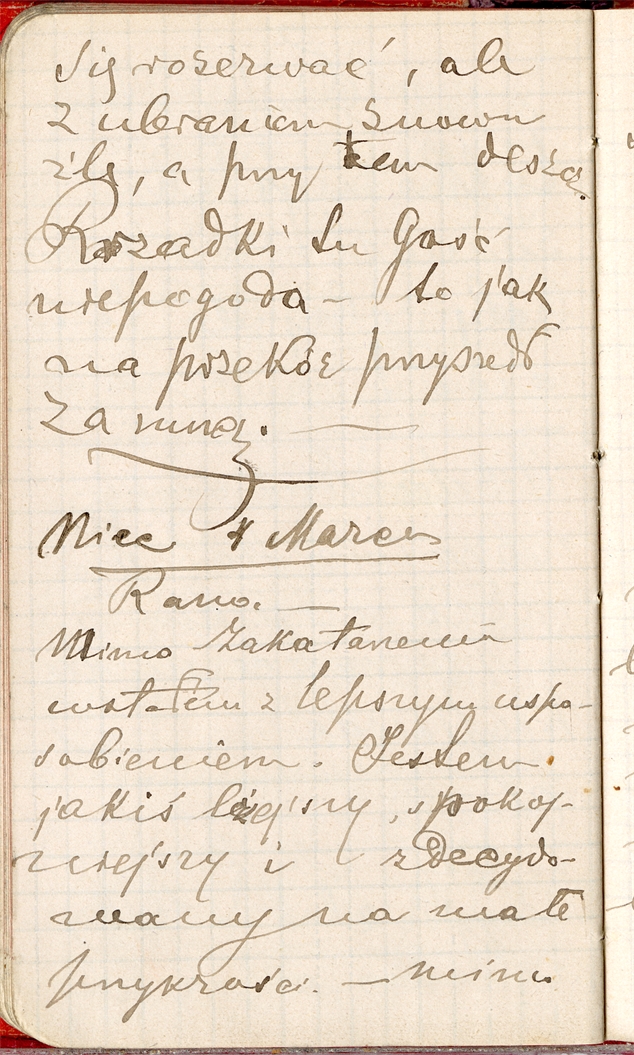 się rozerwać, ale
z ubraniem znowu
źle, a przy tem deszcz.
Rzadki tu gość
niepogoda – to jak
na przekór przyszedł
za mną. —
Nice Marca
Rano. —
Mimo zakatarzenia
wstałem z lepszym uspo-
sobieniem. Jestem
jakiś lżejszy, spokoj-
niejszy i zdecydo-
wany na małe
przykrości. — mimo